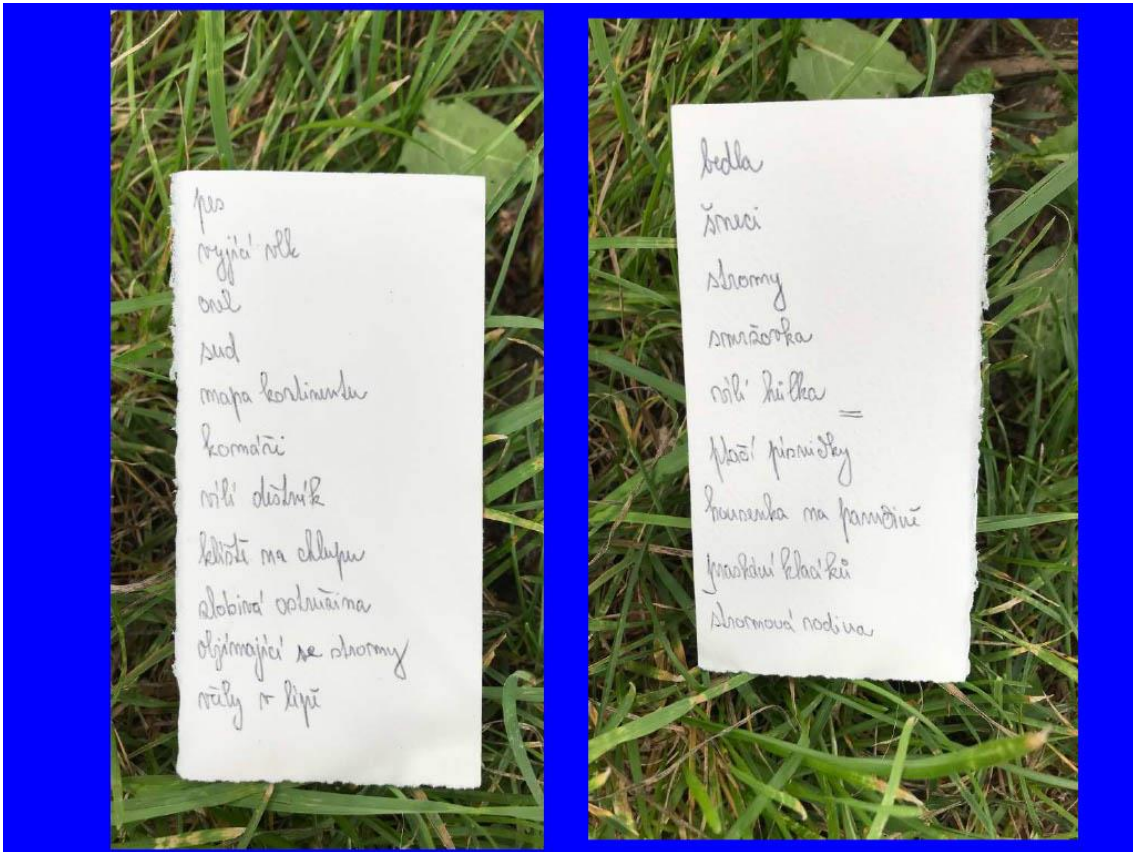 pes
vyjící vlk
orel
sud
mapa kontinentu
komáři
vílí deštník
klíště na chlupu
zlobivá ostružina
objímající se stromy
včely v lípě
bedla
šneci
stromy
smržovka
vílí hůlka
ptačí písničky
housenka na pavučině
praskání klacíků
stromová rodina